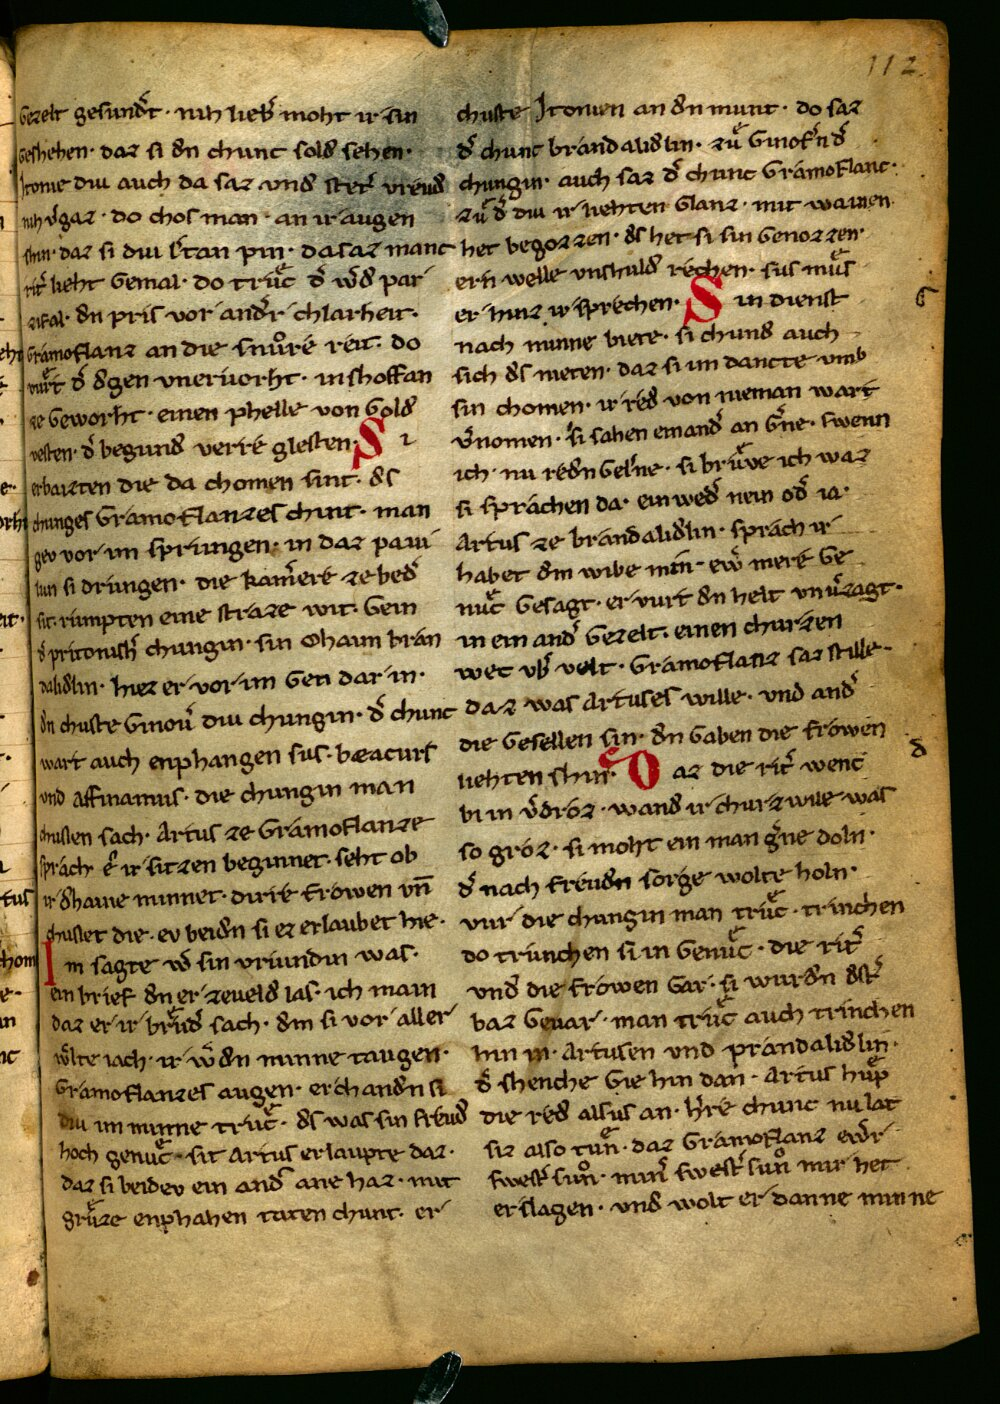 112
gezelt gesundt̾ · nih lieb̾ moht ir sin
geshehen · daz si dn chunc sold sehen ·
Itonie diu auch da saz und stet̾ vreud
nih v̾gaz · do chos man · an ir augen
shin · daz si diu l̾tan pin · da saz manc
rit̾ lieht gemal · do trůc d̾ w̾d par
zifal · dn pris vor and̾r chlarheit ·
Gramoflanz an die snůre reit · do
vůrt d̾ dgen vnervorht · in shoffan
ze geworht · einen phelle von gold
vesten · d̾ begund verre glesten · S i
erbaizten die da chomen sint · ds
chunges Gramoflanzes chint · man
gev vor im sprungen · in daz pavi
lun si drungen · die kam̾ere ze bed̾
sit · rumpten eine straze wit · gein
d̾ pritonish̾ chungin · sin ohaim bran
dalidlin · hiez er vor im gen dar in ·
dn chuste Ginov̾ diu chungin · d̾ chunc
wart auch enphangen sus · beacurs
und affinamus · die chungin man
chussen sach · Artus ze Gramoflanze
sprach · e̾ ir sitzen beginnet · seht ob
ir dhaine minnet · dirre frowen vn̄
chusset die · ev beidn si ez erlaubet hie ·
Im sagte w̾ sin vriundin was ·
ein brief dn er zeveld las · ich main
daz er ir brůd̾ sach · dm si vor aller
w̾lte iach · ir w̾dn minne taugen ·
Gramoflanzes augen · erchandn si
diu im minne trůc · ds was sin freud
hoch genůc · sit Artus erlaupte daz ·
daz si beidev ein and̾ ane haz · mit
grůze enphahen taten chunt · er
chuste Itonien an dn munt · do saz
d̾ chunc brandalidlin · zů Ginof̾n d̾
chungin · auch saz d̾ chunc Gramoflanc ·
zů d̾ diu ir liehten glanz · mit wainen
het begozzen · ds het si sin genozzen ·
ern welle unshuld rechen · sus můs
er hinz ir sprechen · S in dienst
nach minne biete · si chund auch
sich ds nieten · daz si im dancte vmb
sin chomen · ir red von nieman wart
v̾nomen · si sahen einand̾ an g̾ne · swenn
ich · nu redn gel̾ne · si brůve ich waz
si sprachen da · ein wed̾ nein od̾ ia ·
Artus ze brandalidlin · sprach ir
habet dm wibe min · ew̾ mere ge
nůc gesagt · er vurt dn helt unv̾zagt ·
in ein and̾ gezelt · einen churzen
wec vb̾ velt · Gramoflanz saz stille ·
daz was Artuses wille · und and̾
die gesellen sin · dn gaben die frowen
liehten shin · D az die rit̾ wenc
bi in v̾droz · wand ir churzwile was
so groz · si moht ein man g̾ne doln ·
d̾ nach freudn sorge wolte holn ·
vur die chungin man trůc · trinchen
do trunchen si in genůc · die rit̾
und die frowen gar · si wurdn dst̾
baz gevar · man trůc auch trinchen
hin in · Artusen und prandalidlin ·
d̾ shenche gie hin dan · Artus hůp
die red alsus an · h̾re chunc nu lat
siz also tůn · daz Gramoflanz ew̾r
swest̾ sůn · min̾ swest̾ sůn mir het
erslagen · und wolt er danne minne